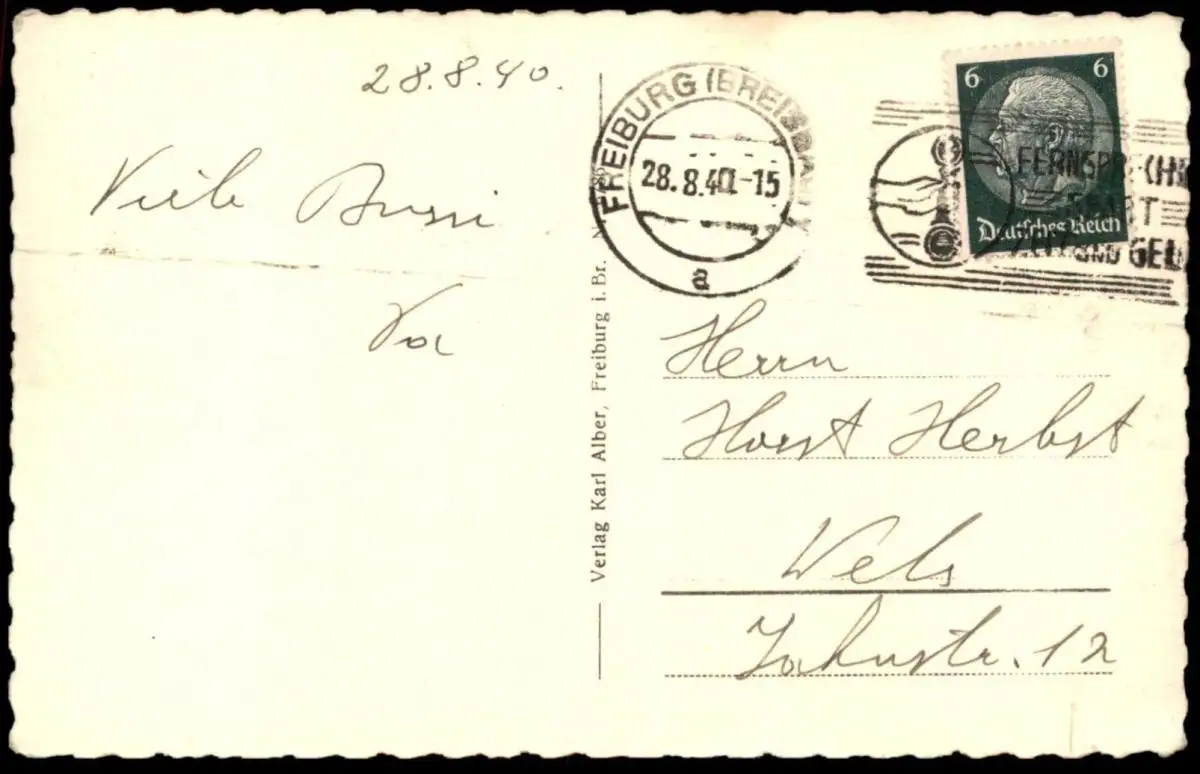 28.8.40.
Viele Bussi
Va
Verlag Karl Alber, Freiburg i. Br.
FREIBURG (BREISGAU)
28.8.40.-15
a
6 6
Deutsches Reich
FERNSPRECHER
SPART
ZEIT UND GELD
Herrn
Horst Herbst
Wels
Jahnstr. 12